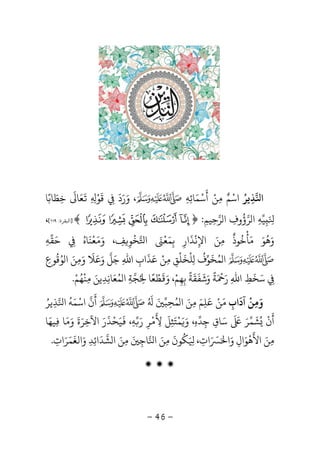 النَّذِيرُ
النَّذِيرُ اسْمٌ مِنْ أَسْمَائِهِ ﷺ، وَرَدَ فِي قَوْلِهِ تَعَالَى خِطَابًا
لِنَبِيِّهِ الرَّؤُوفِ الرَّحِيمِ: ﴿ إِنَّآ أَرْسَلْنَٰكَ بِٱلْحَقِّ بَشِيرًا وَنَذِيرًا ﴾ [البقرة: ١١٩]،
وَهُوَ مَأْخُوذٌ مِنَ الإِنْذَارِ بِمَعْنَى التَّخْوِيفِ، وَمَعْنَاهُ فِي حَقِّهِ
ﷺ المُخَوِّفُ لِلْخَلْقِ مِنْ عَذَابِ اللهِ جَلَّ وَعَلَا وَمِنَ الوُقُوعِ
فِي سَخَطِ اللهِ رَحْمَةً وَشَفَقَةً بِهِمْ، وَقَطْعًا لِحُجَّةِ المُعَانِدِينَ مِنْهُمْ.
وَمِنْ آدَابِ مَنْ عَلِمَ مِنَ المُحِبِّينَ لَهُ ﷺ أَنَّ اسْمَهُ النَّذِيرُ
أَنْ يُشَمِّرَ عَلَى سَاقِ جِدِّهِ، وَيَمْتَثِلَ لِأَمْرِ رَبِّهِ، فَيَحْذَرَ الآخِرَةَ وَمَا فِيهَا
مِنَ الأَهْوَالِ وَالحَسَرَاتِ، لِيَكُونَ مِنَ النَّاجِينَ مِنَ الشَّدَائِدِ وَالغَمَرَاتِ.
* * *
- 46 -